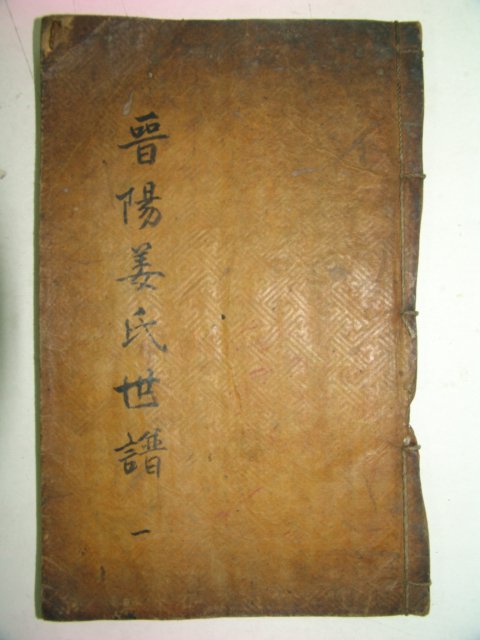 晋陽姜氏世譜 一